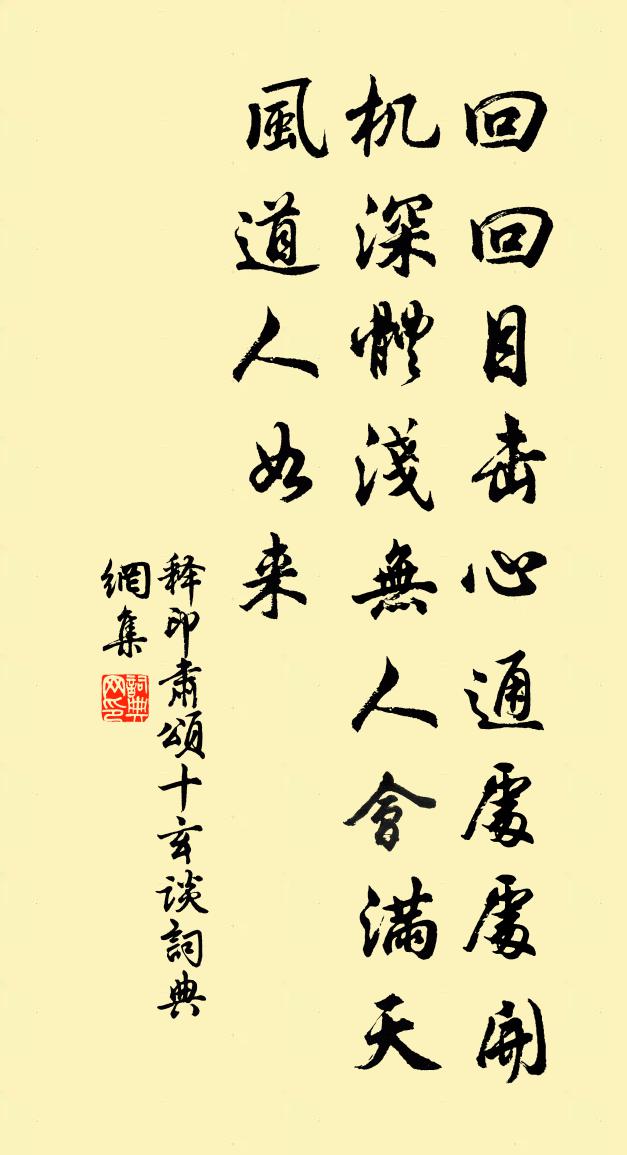 回回目击心通處處開
机深體淺無人會滿天
風道人如来
释印肃頌十玄谈詞典
網集
詞典
网印